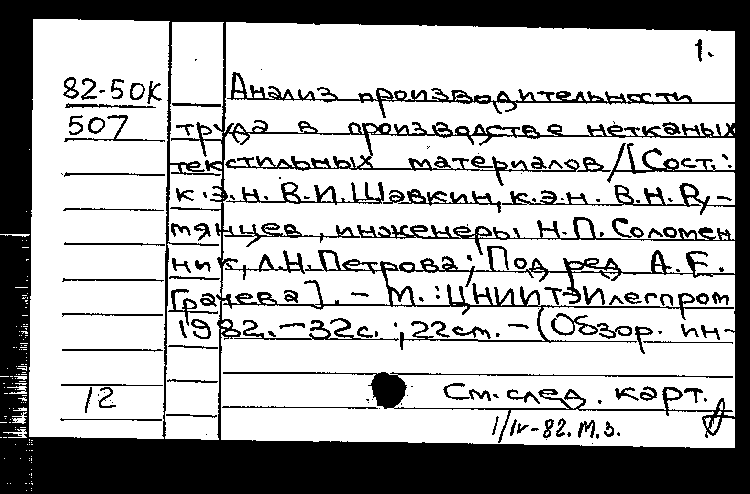 1.
82-50К Анализ производительности
507 труда в производстве нетканых
текстильных материалов/[Сост.:
к.э.н. В.И.Шавкин, к.э.н. В.Н.Ру-
мянцев, инженеры Н.П. Соломен
ник, Л.Н.Петрова; Под ред А.Е.
Грачева]. - М.:ЦНИИТЭИлегпром
1982.-32с.;22см.-(Обзор. ин-
12 См.след. карт.
1/IV-82.М.З.